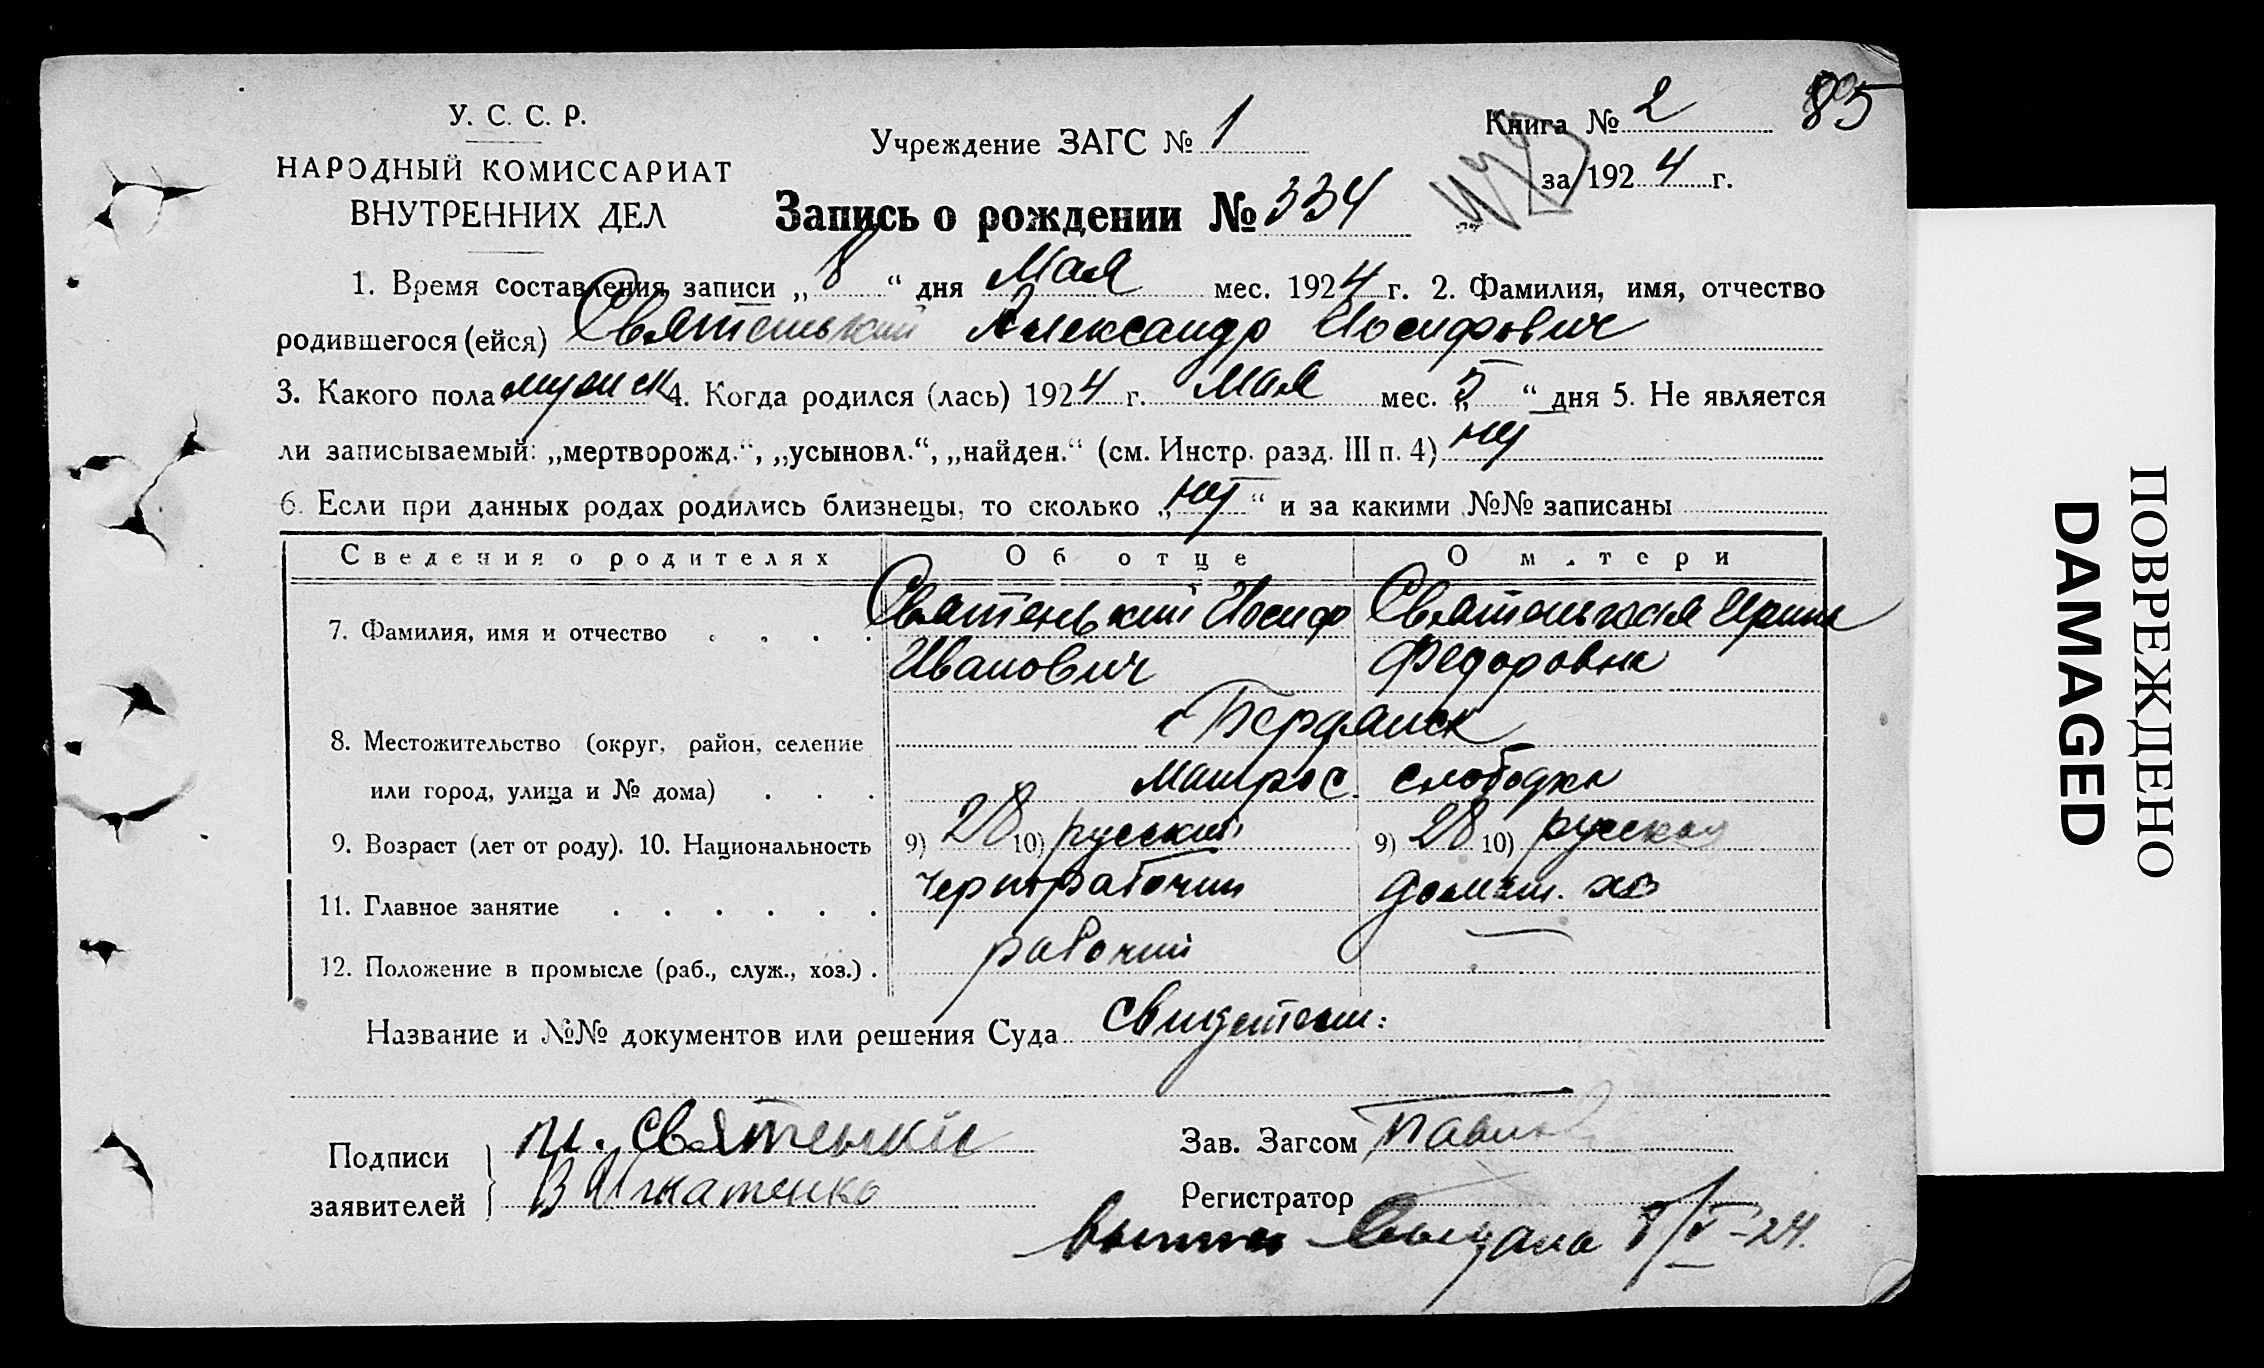 У. С. С. Р.
НАРОДНЫЙ КОМИССАРИАТ
ВНУТРЕННИХ ДЕЛ
Учреждение ЗАГС № 1
Книга № 2
85
за 1924 г.
Запись о рождении № 334
1. Время составления записи „ 8 “ дня Мая мес. 1924 г. 2. Фамилия, имя, отчество
родившегося (ейся) Святенький Александр Иосифович
3. Какого пола мужск 4. Когда родился (лась) 1924 г. Мая мес. „ 5 “ дня 5. Не является
ли записываемый: „мертворожд.“, „усыновл.“, „найден.“ (см. Инстр. разд. III п. 4) нет
6. Если при данных родах родились близнецы, то сколько „ нет “ и за какими №№ записаны
Сведения о родителях Об отце О м.тери
7. Фамилия, имя и отчество . . . . Святенький Иосиф Святенькая Ирина
Иванович Федоровна
8. Местожительство (округ, район, селение г Бердянск
или город, улица и № дома) . . . Матрос. слободка
9. Возраст (лет от роду). 10. Национальность 9) 28 10) русский 9) 28 10) русская
11. Главное занятие . . . . . . чернорабочий домаш. хоз
12. Положение в промысле (раб., служ., хоз.) . рабочий —
Название и №№ документов или решения Суда свидетели:
Подписи
заявителей
И. Святенкій
В Игнатенко
Зав. Загсом
Регистратор
выдала 8/V-24.
ПОВРЕЖДЕНО
DAMAGED